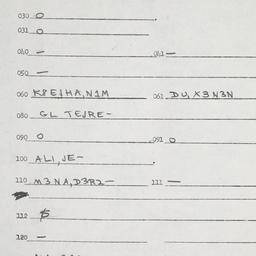 030 O
031 O
040 — 041 —
050 —
060 K8EJHA,N1M 061 DU,X3N3N
080 GL TEJRE-
090 O 091 O
100 ALI,JE-
110 M3NA,D3R2— 111 —
112
120 —